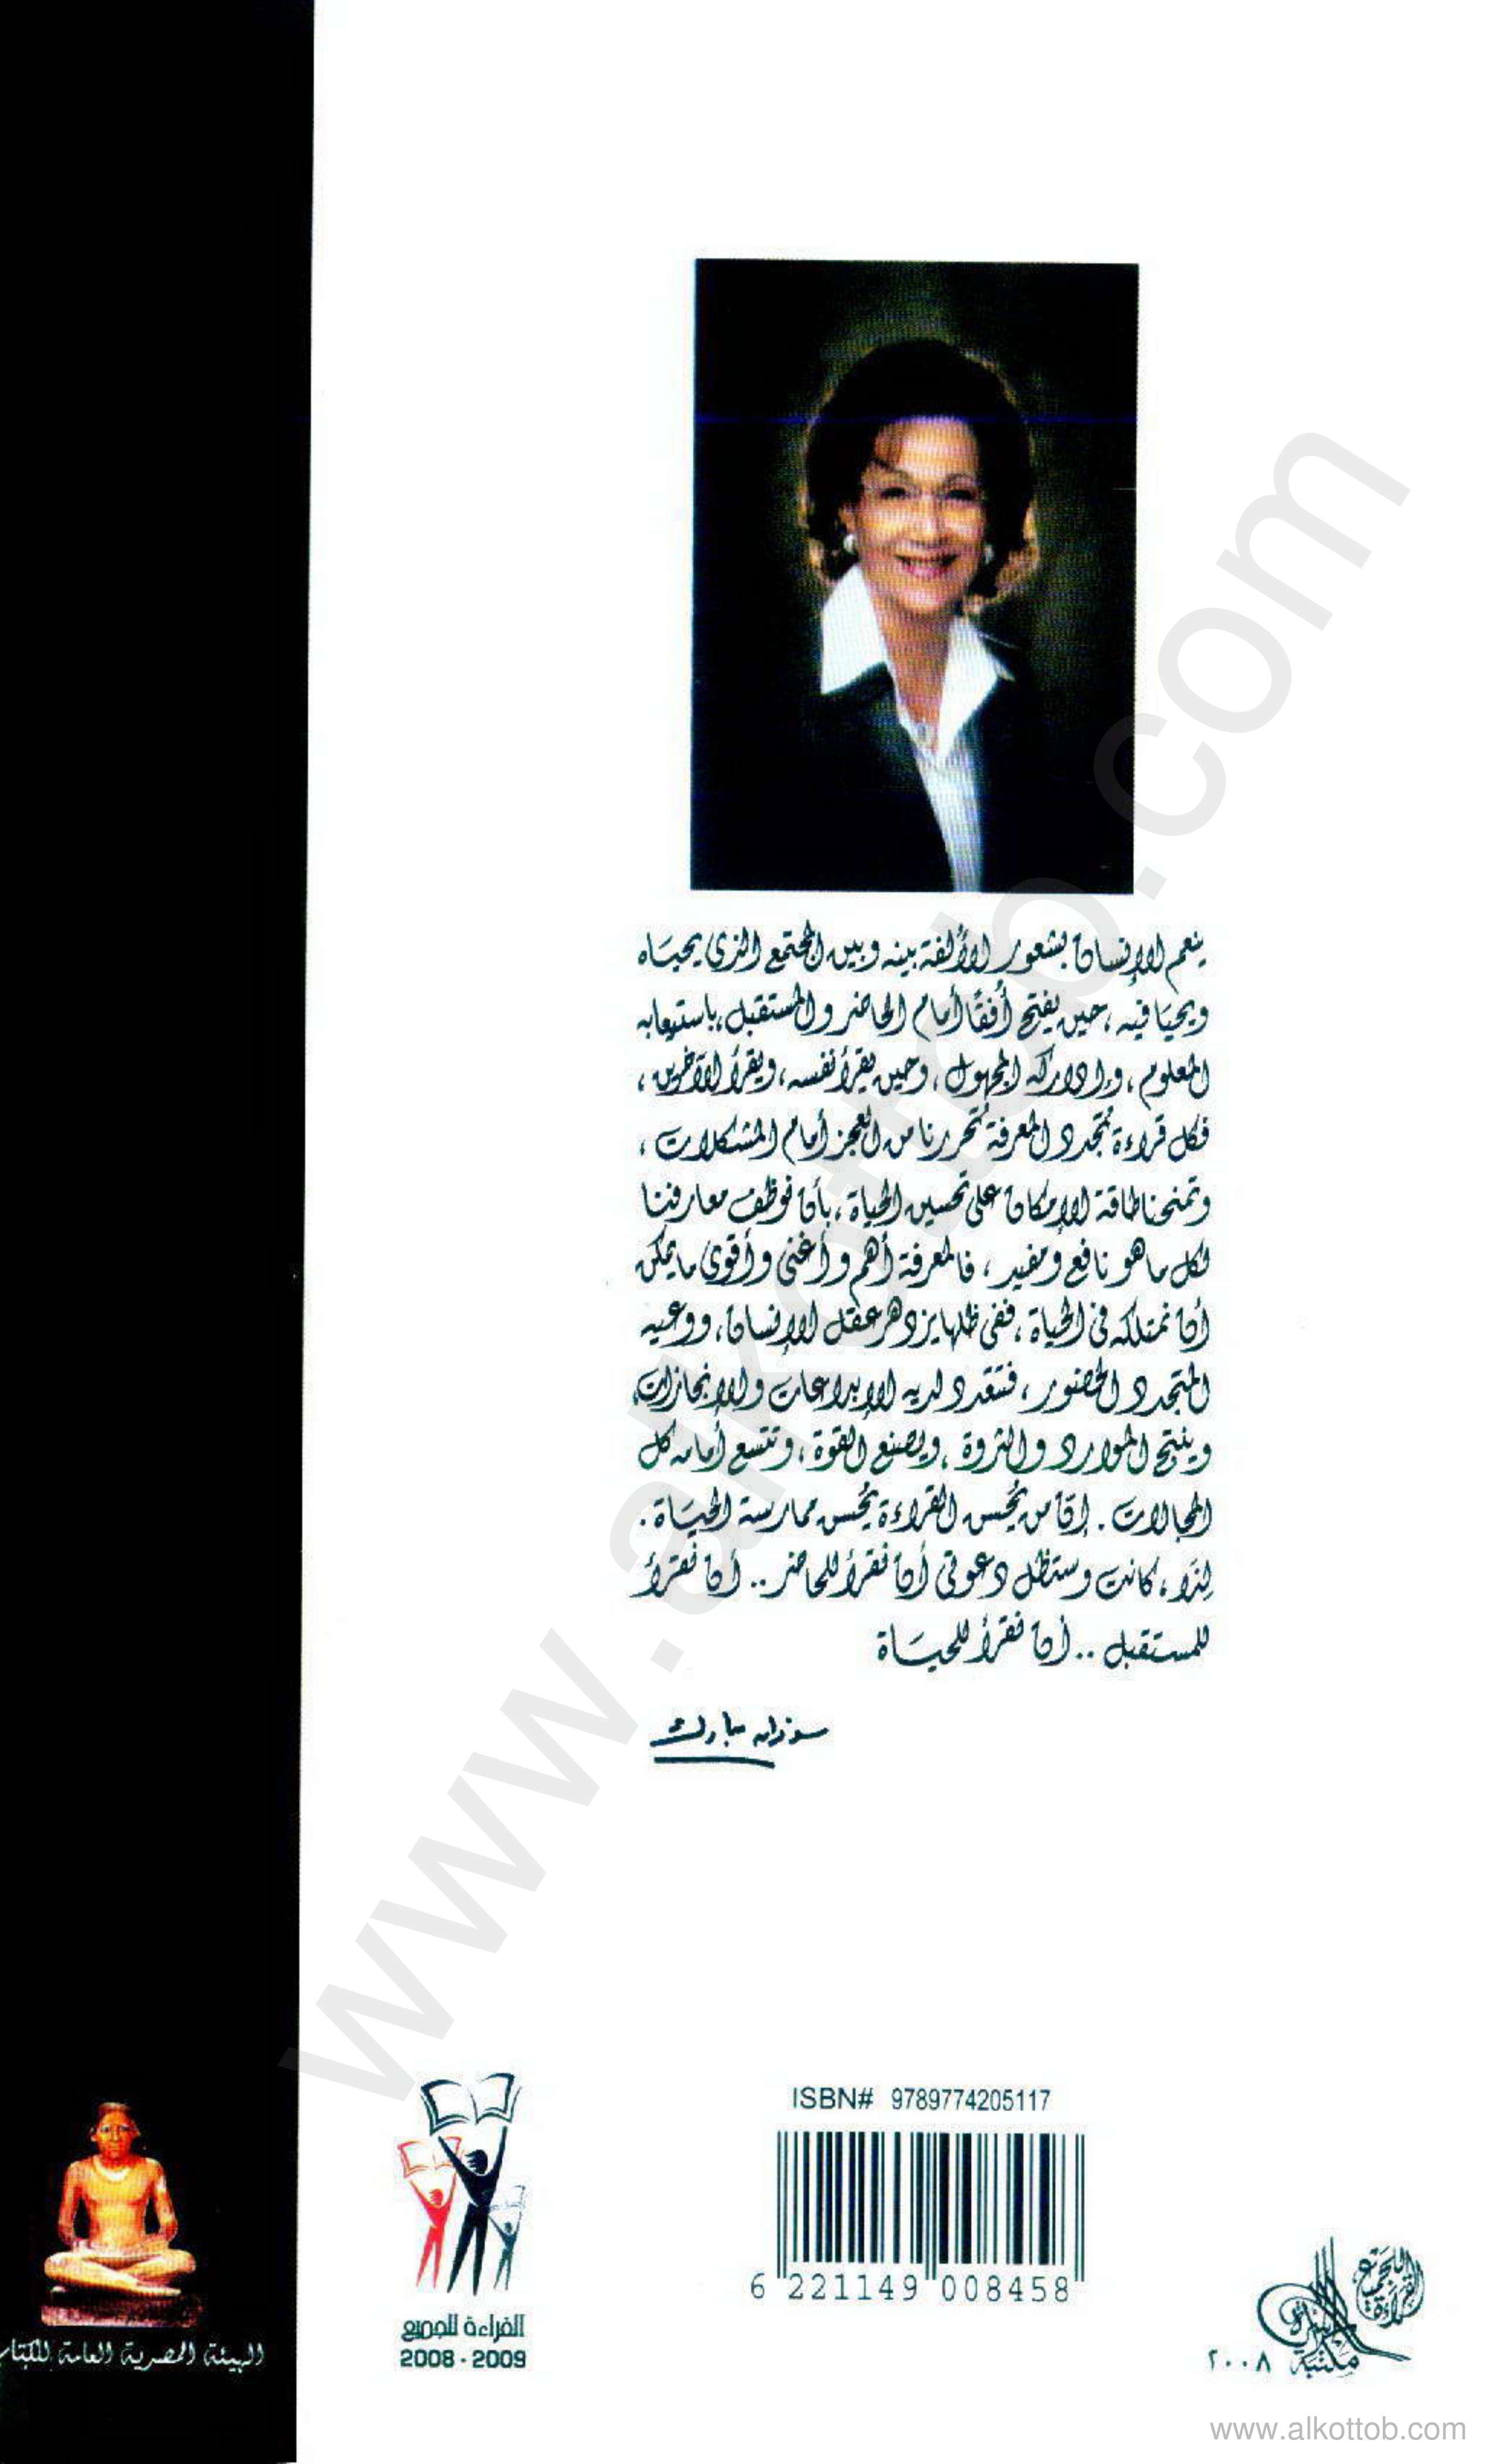 ينعم الإنسان بشعور الألفة بينه وبين المجتمع الذى يحياه
ويحيا فيه، حين يفتح أفقًا أمام الحاضر والمستقبل، باستيعابه
المعلوم، وإدراكه المجهول، وحين يقرأ نفسه، ويقرأ الآخرين،
فكل قراءة تُجدد المعرفة تُحررنا من العجز أمام المشكلات،
وتمنحنا طاقة الإمكان على تحسين الحياة، بأن نوظف معارفنا
لكل ما هو نافع ومفيد، فالمعرفة أهم وأغنى وأقوى ما يمكن
أن نمتلكه فى الحياة، ففى ظلها يزدهر عقل الإنسان، ووعيه
المتجدد الحضور، فتتعدد لديه الإبداعات والإنجازات،
وينتج الموارد والثروة، ويصنع القوة، وتتسع أمامه كل
المجالات. إن من يُحسن القراءة يُحسن ممارسة الحياة.
لِذَا، كانت وستظل دعوتى أن نقرأ للحاضر.. أن نقرأ
للمستقبل.. أن نقرأ للحياة
سوزان مبارك
ISBN# 9789774205117
6 221149 008458
القراءة للجميع
2008 - 2009
الهيئة المصرية العامة للكتاب
القراءة للجميع
مكتبة الأسرة
٢٠٠٨
www.alkottob.com
www.alkottob.com